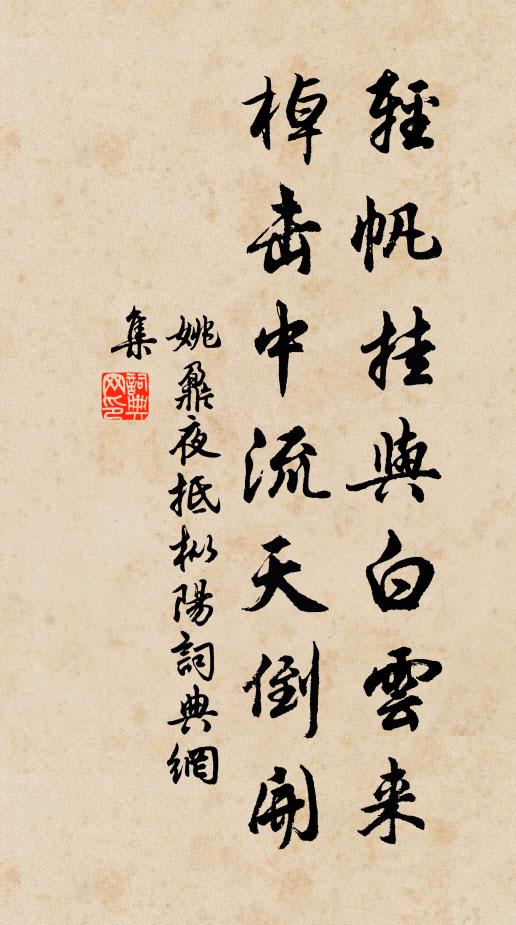 輕帆挂與白雲来
棹击中流天倒開
姚鼐夜抵枞陽詞典網
集
詞典
网印